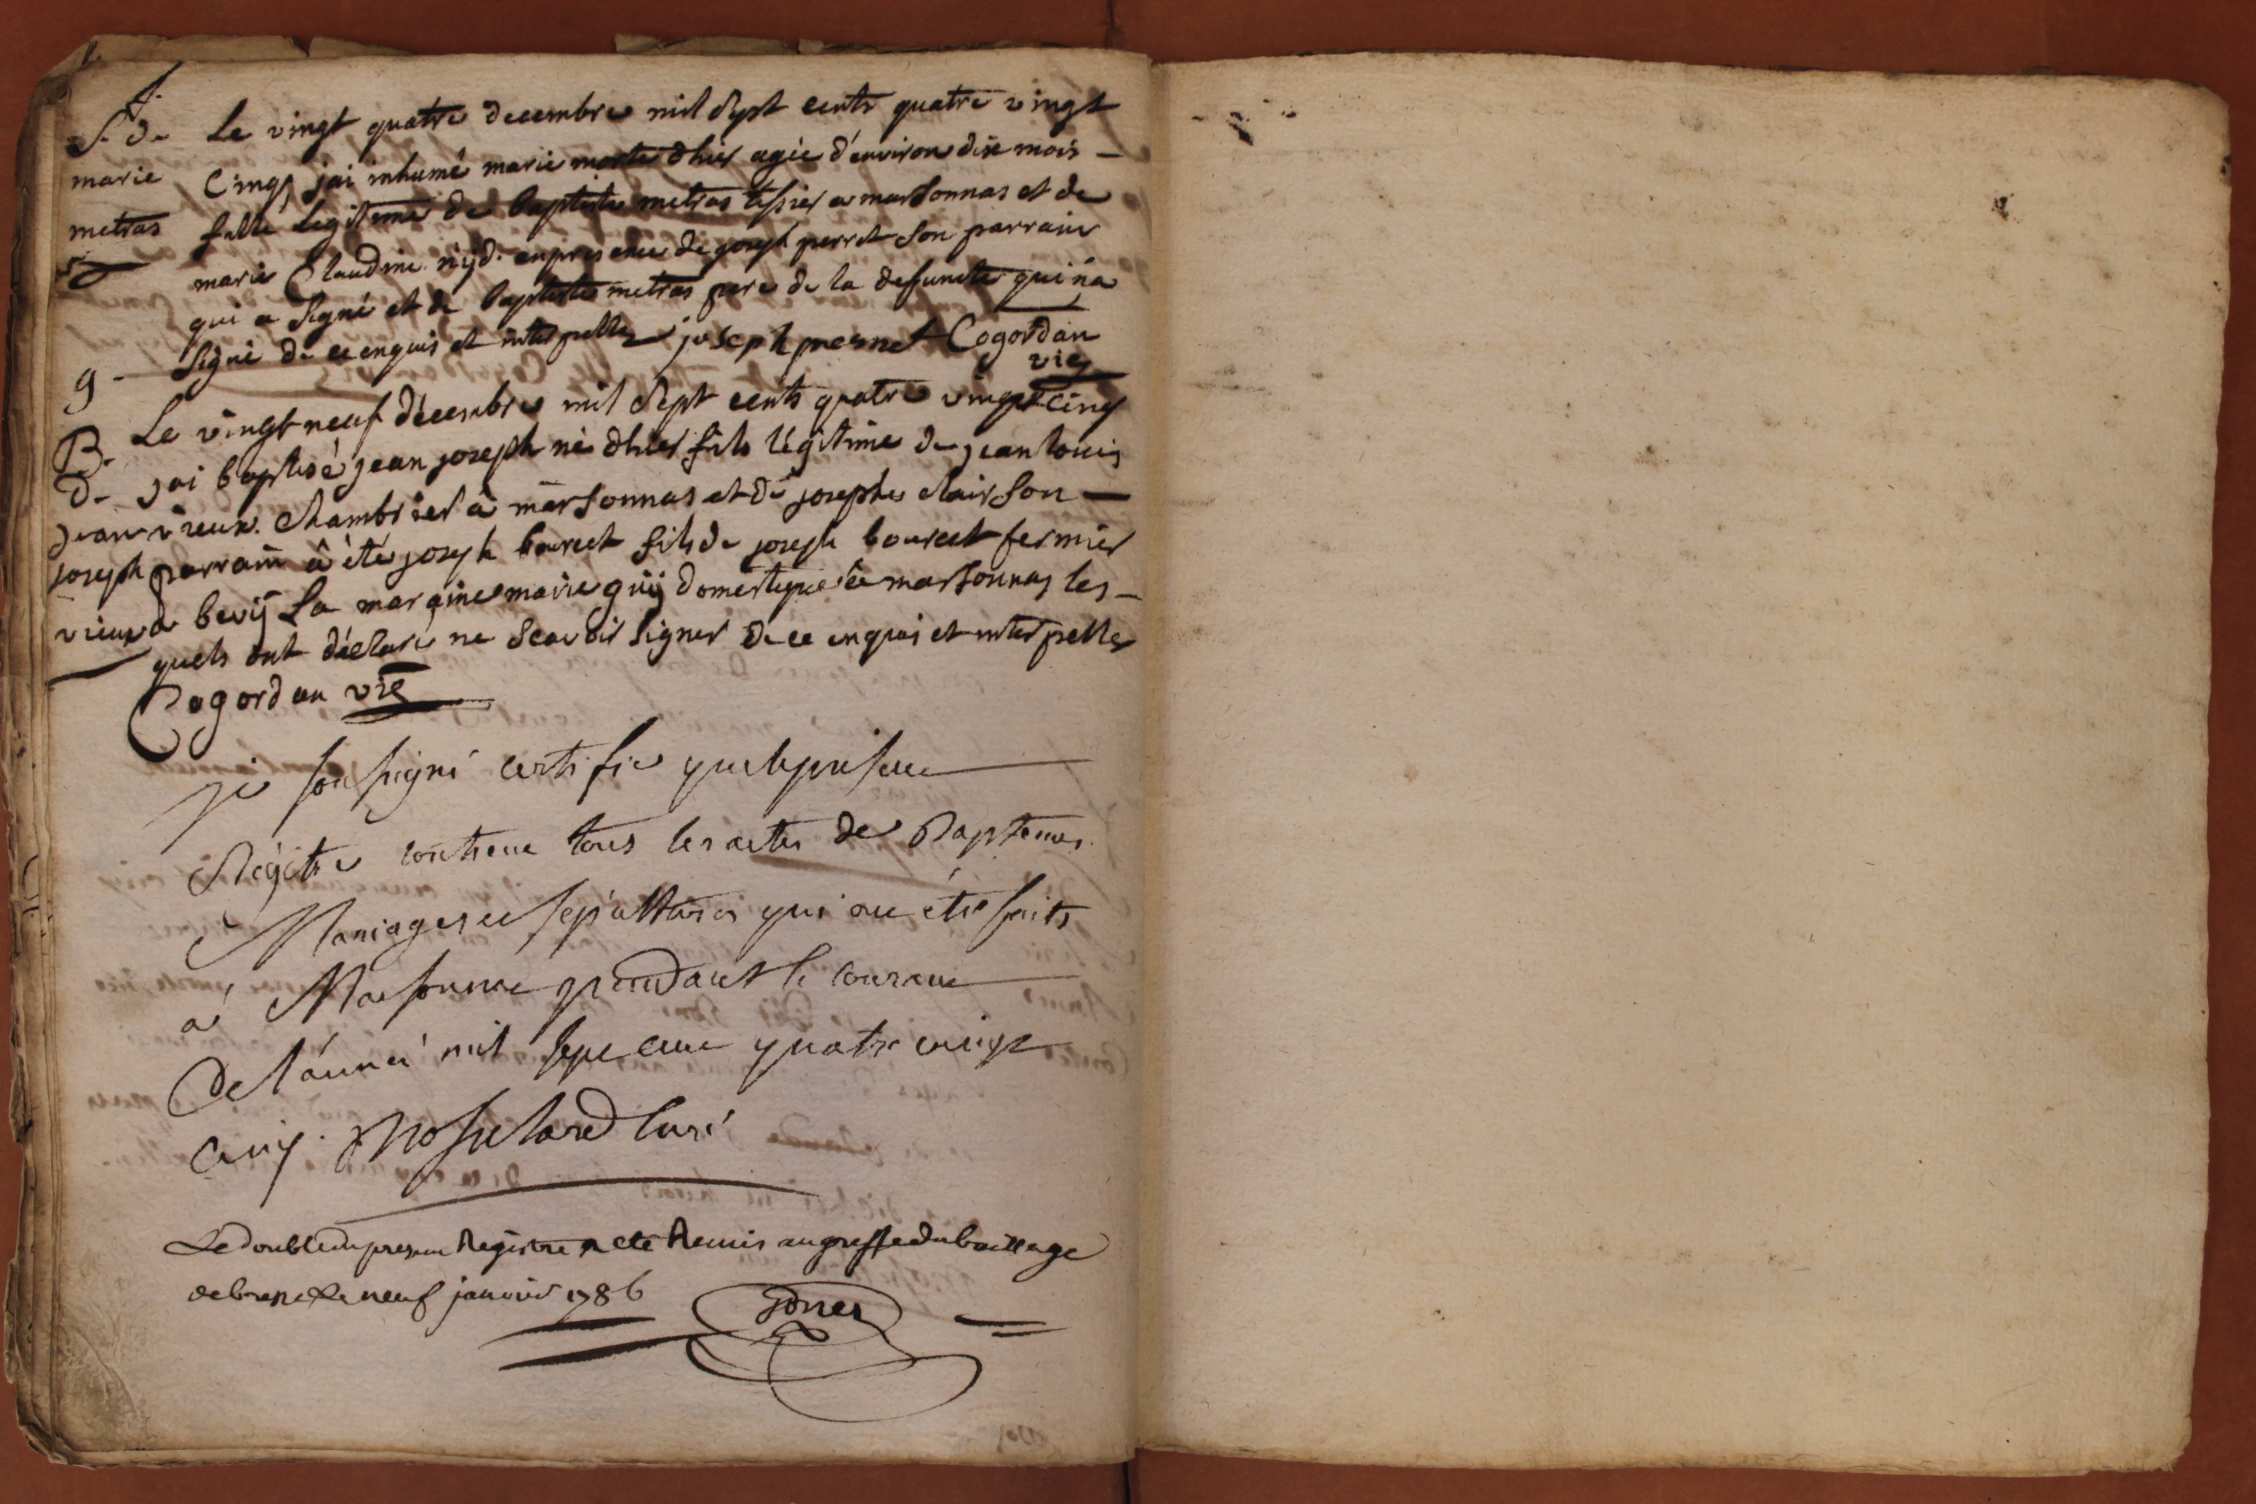 S. d.
marie
metras
5
Le vingt quatre decembre mil Sept cents quatre vingt
Cinq, jai inhumé marie morte d'hier agée d'environ dix mois
fille Legitime de baptiste metras tissier a marsonnas et de
marie Claudine nyd. en presence de joseph perret Son parrain
qui a Signé et de baptiste metras pere de la defuncte qui n'a
Signé de ce enquis et interpellez joseph pernet Cogordan
vic
9
B. d.
jean
joseph
vieux
Le vingt neuf décembre mil Sept cents quatre vingt cinq
jai baptisé jean joseph né d'hier fils légitime de jean louis
vieux. Chambrier à marsonnas et de josephe clair Son
parrain â été joseph bourcet fils de joseph bourcet fermier
a bevÿ La maraine marie guÿ domestique à marsonnas les
quels ont déclaré ne Scavoir Signer de ce enquis et interpellez
Cogordan vic
je Soussigné certifie que le present
Régitre contient tous les actes de Baptemes
Mariages et Sepulttures qui ont été faits
à Marsonnas pendant le courant
de l'année mil Sept cent quatre vingt
cinq. curé
Le double du present Registre a eté Remis au greffe du bailliage
de bresse le neuf janvier 1786